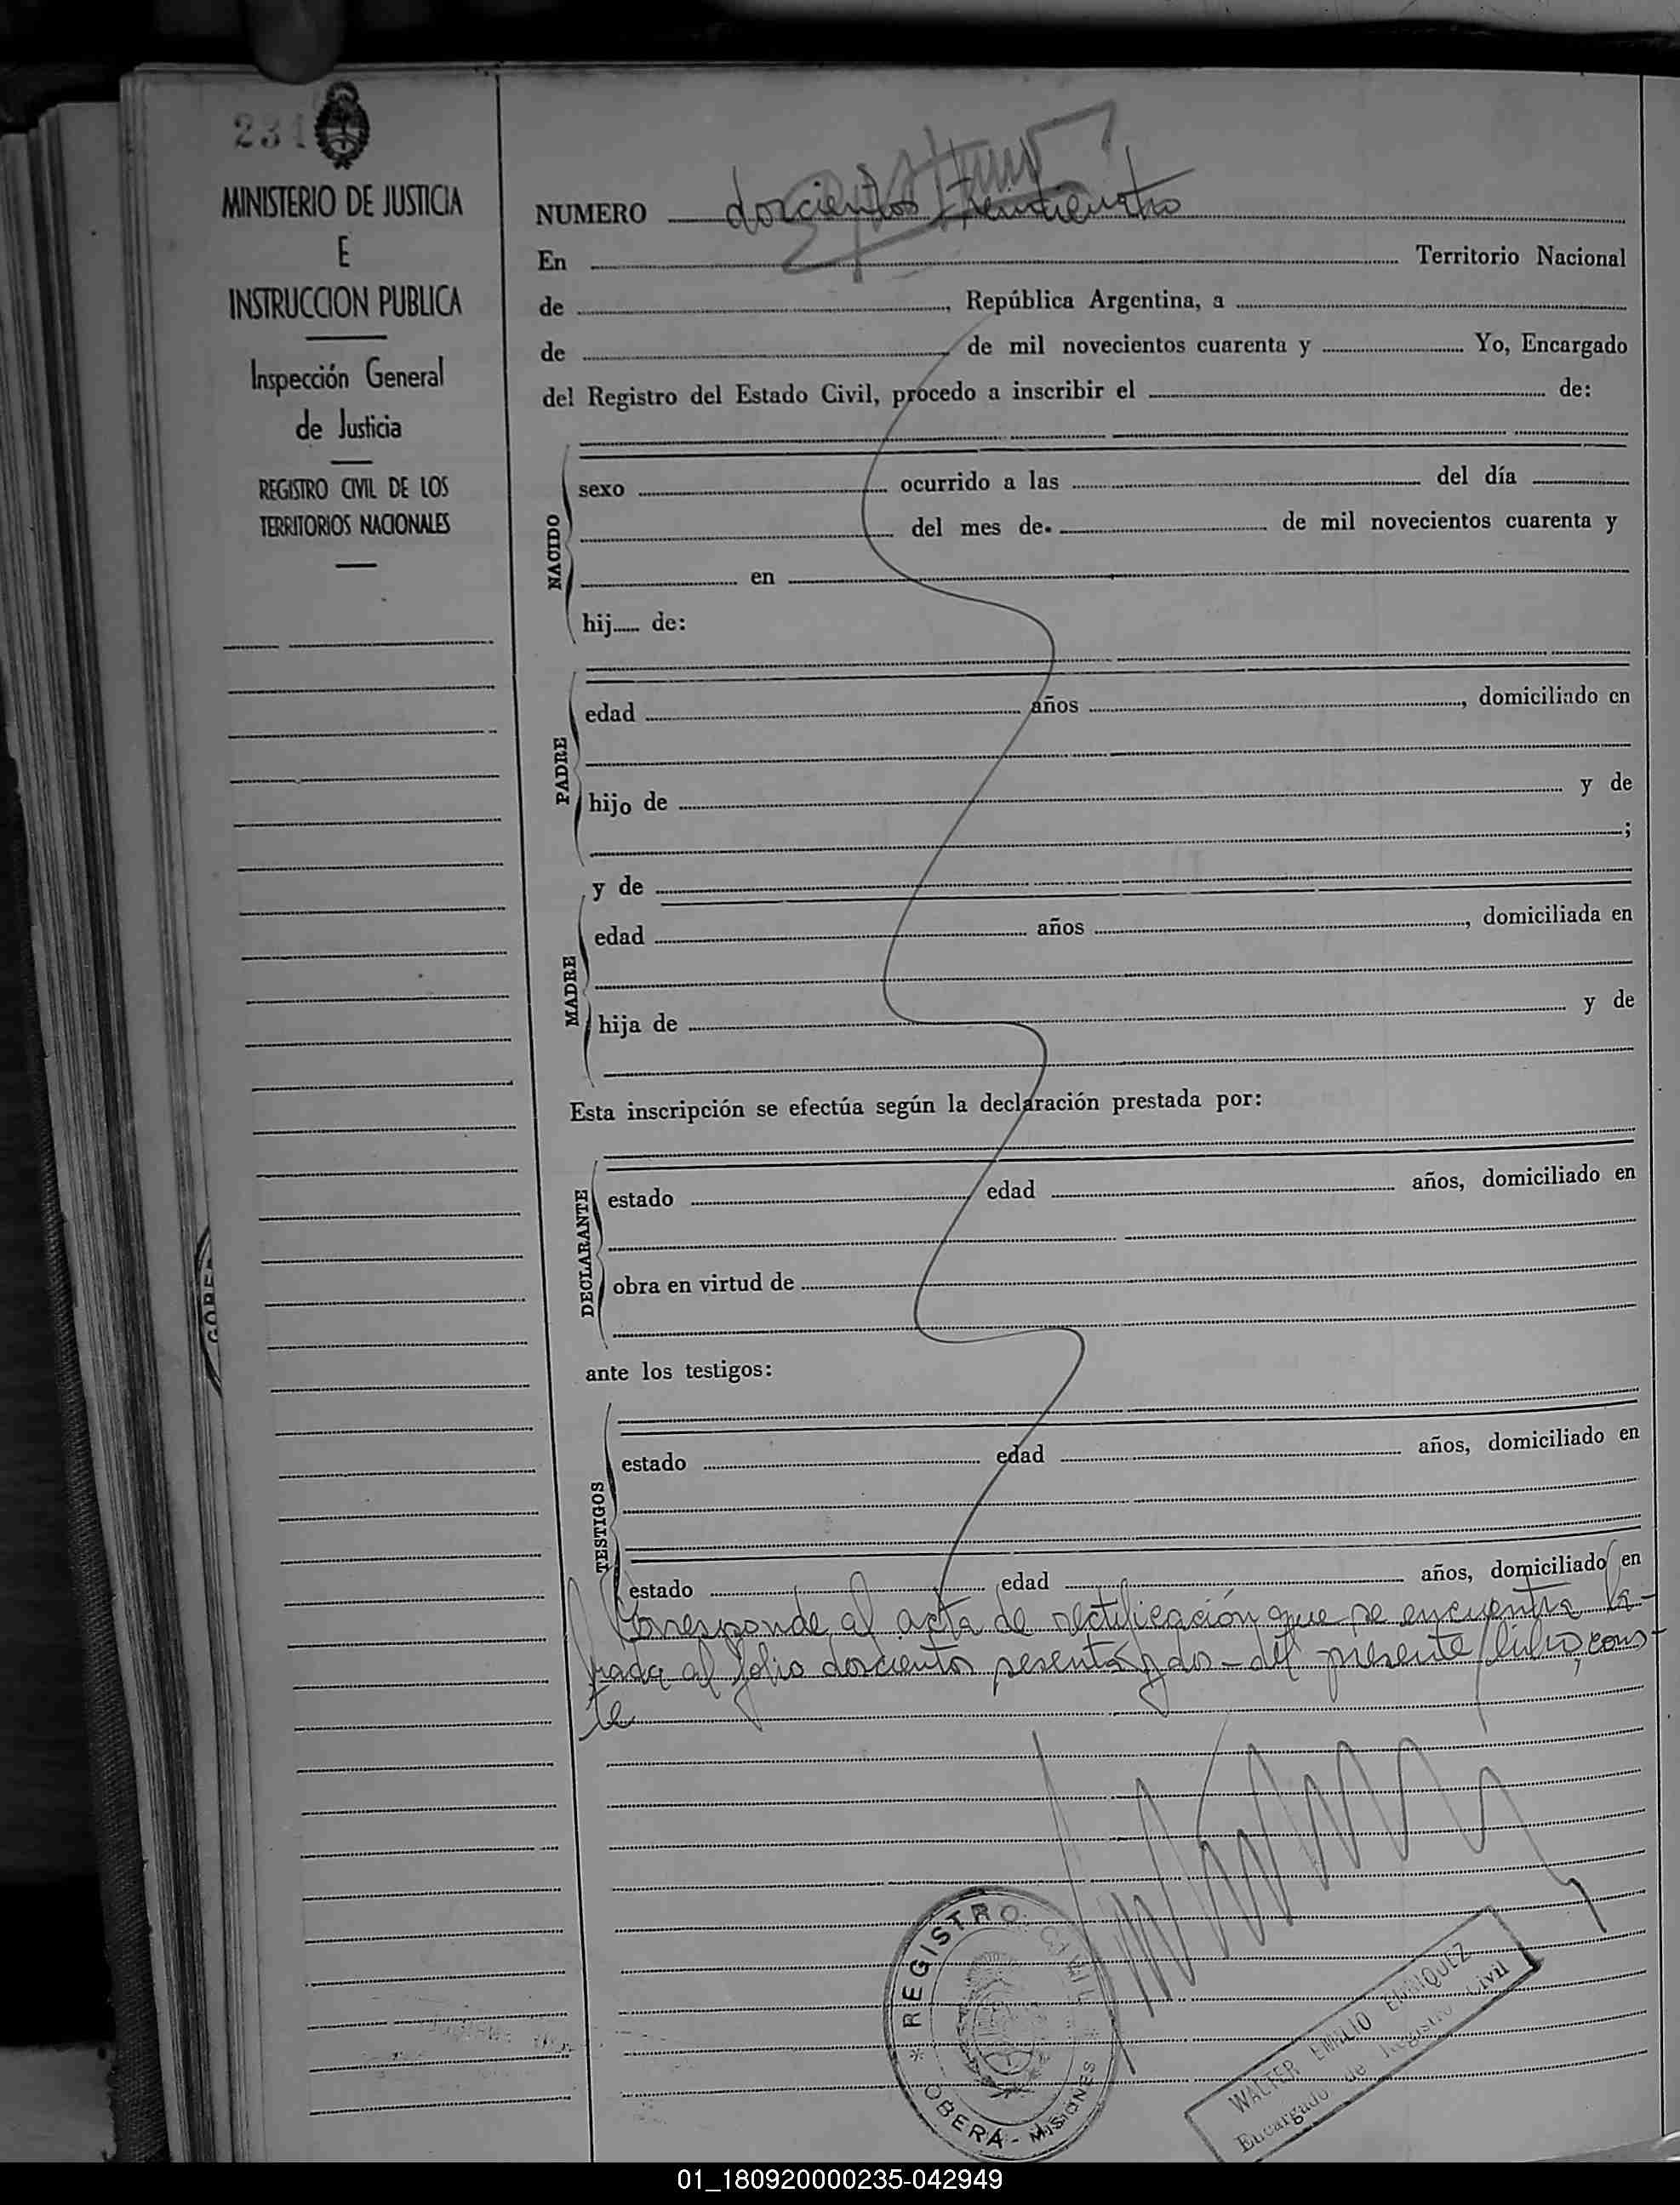 234
MINISTERIO DE JUSTICIA
E
INSTRUCCION PUBLICA
Inspección General
de Justicia
REGISTRO CIVIL DE LOS
TERRITORIOS NACIONALES
NUMERO doscientos treinticuatro
En Territorio Nacional
de , República Argentina, a
de de mil novecientos cuarenta y Yo, Encargado
del Registro del Estado Civil, procedo a inscribir el de:
NACIDO
sexo ocurrido a las del día
del mes de. de mil novecientos cuarenta y
en
hij...... de:
PADRE
edad años , domiciliado en
hijo de y de
;
y de
MADRE
edad años , domiciliada en
hija de y de
Esta inscripción se efectúa según la declaración prestada por:
DECLARANTE
estado edad años, domiciliado en
obra en virtud de
ante los testigos:
TESTIGOS
estado edad años, domiciliado en
estado edad años, domiciliado en
Corresponde al acta de rectificación que se encuentra la-
brada al folio doscientos sesenta y dos - del presente libro, cons-
te
REGISTRO CIVIL
* OBERÁ - MISIONES *
WALTER EMILIO ENRIQUEZ
Encargado de Registro Civil
GOBE
01_180920000235-042949